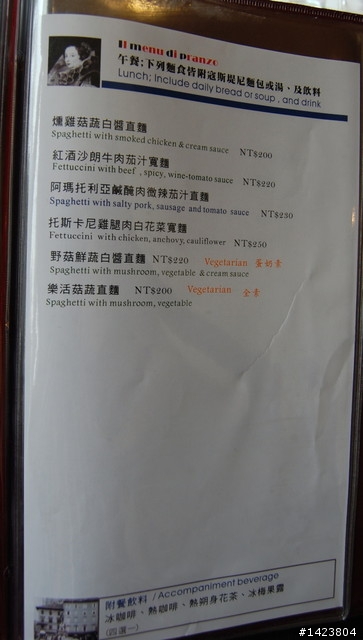 Il menu di pranzo
午餐;下列麵食皆附寇斯堤尼麵包或湯、及飲料
Lunch; Include daily bread or soup , and drink
燻雞菇蔬白醬直麵
Spaghetti with smoked chicken & cream sauce NT$200
紅酒沙朗牛肉茄汁寬麵
Fettuccini with beef , spicy, wine-tomato sauce NT$220
阿瑪托利亞鹹醃肉微辣茄汁直麵
Spaghetti with salty pork, sausage and tomato sauce NT$230
托斯卡尼雞腿肉白花菜寬麵
Fettuccini with chicken, anchovy, cauliflower NT$250
野菇鮮蔬白醬直麵 NT$220 Vegetarian 蛋奶素
Spaghetti with mushroom, vegetable & cream sauce
樂活菇蔬直麵 NT$200 Vegetarian 全素
Spaghetti with mushroom, vegetable
附餐飲料 / Accompaniment beverage
冰咖啡、熱咖啡、熱洋甘花茶、冰梅果露
(四選一)
#1423804